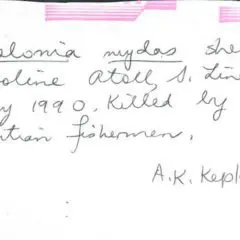 elonia mydas she
oline Atoll, S. Lin
y 1990. Killed by
tian fishermen.
A.K. Kepl